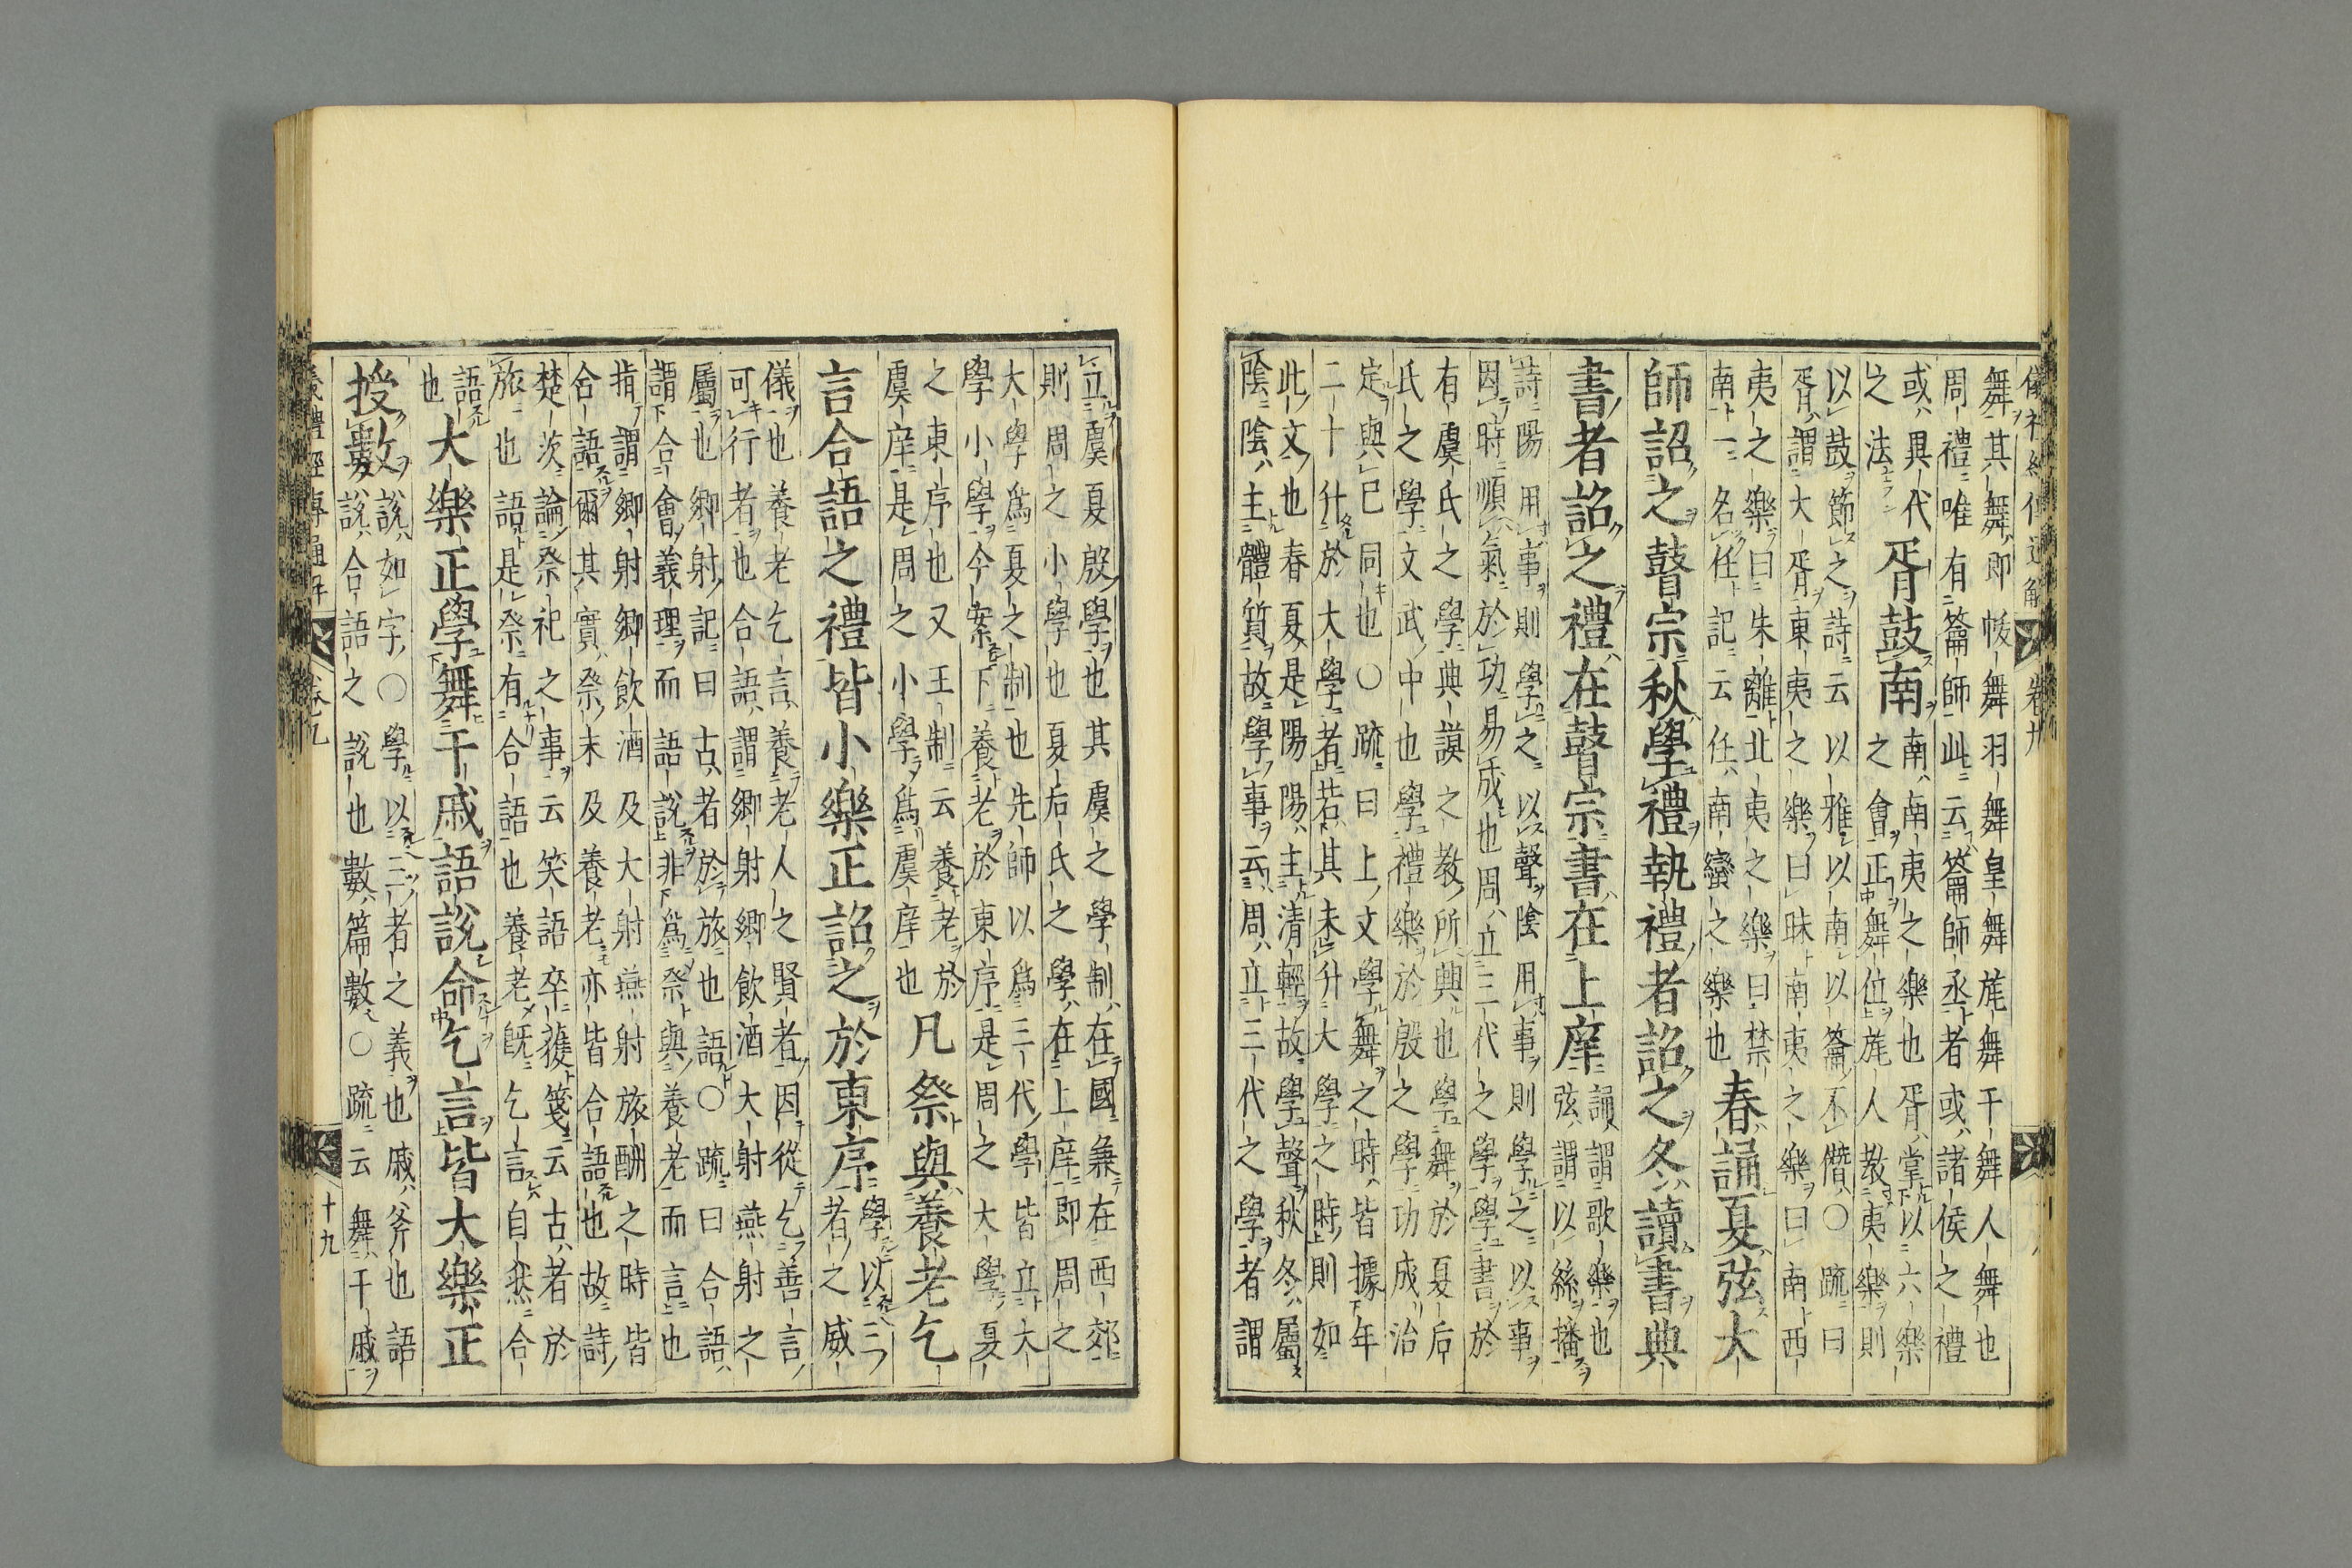 舞其舞即帗舞羽舞皇舞旄舞干舞人舞也
周禮唯有籥師此云籥師丞者或諸侯之禮
或異代
之法
胥鼓南
南南夷之樂也胥掌以六樂
之會正舞位旄人教夷樂則
以鼓節之詩云以雅以南以籥不僭〇疏曰
胥謂大胥東夷之樂曰昧南夷之樂曰南西
夷之樂曰朱離北夷之樂曰禁
南一名任記云任南蠻之樂也
春誦夏弦大
師詔之瞽宗秋學禮執禮者詔之冬讀書典
書者詔之禮在瞽宗書在上庠
誦謂歌樂也
弦謂以絲播
詩陽用事則學之以聲陰用事則學之以事
因時順氣於功易成也周立三代之學學書於
有虞氏之學典謨之教所興也學舞於夏后
氏之學文武中也學禮樂於殷之學功成治
定與已同也〇疏曰上文學舞之時皆據年
二十升於大學者若其未升大學之時則如
此文也春夏是陽陽主清輕故學聲秋冬屬
陰陰主體質故學事云周立三代之學者謂
立虞夏殷學也其虞之學制在國兼在西郊
則周之小學也夏后氏之學在上庠即周之
大學爲夏之制也先師以爲三代學皆立大
學小學今案下養老於東序是周之大學夏
之東序也又王制云養老於
虞庠是周之小學爲虞庠也
凡祭與養老乞
言合語之禮皆小樂正詔之於東序
學以三
者之威
儀也養老乞言養老人之賢者因從乞善言
可行者也合語謂鄉射鄉飲酒大射燕射之
屬也鄉射記曰古者於旅也語〇疏曰合語
謂合會義理而語說非爲祭與養老而言也
指謂鄉射鄉飲酒及大射燕射旅酬之時皆
合語爾其實祭末及養老亦皆合語也故詩
楚茨論祭祀之事云笑語卒獲箋云古者於
旅也語是祭有合語也養老既乞言自然合
語
也
大樂正學舞干戚語說命乞言皆大樂正
授數
說如字〇學以三者之義也戚斧也語
說合語之說也數篇數〇疏云舞干戚
十九